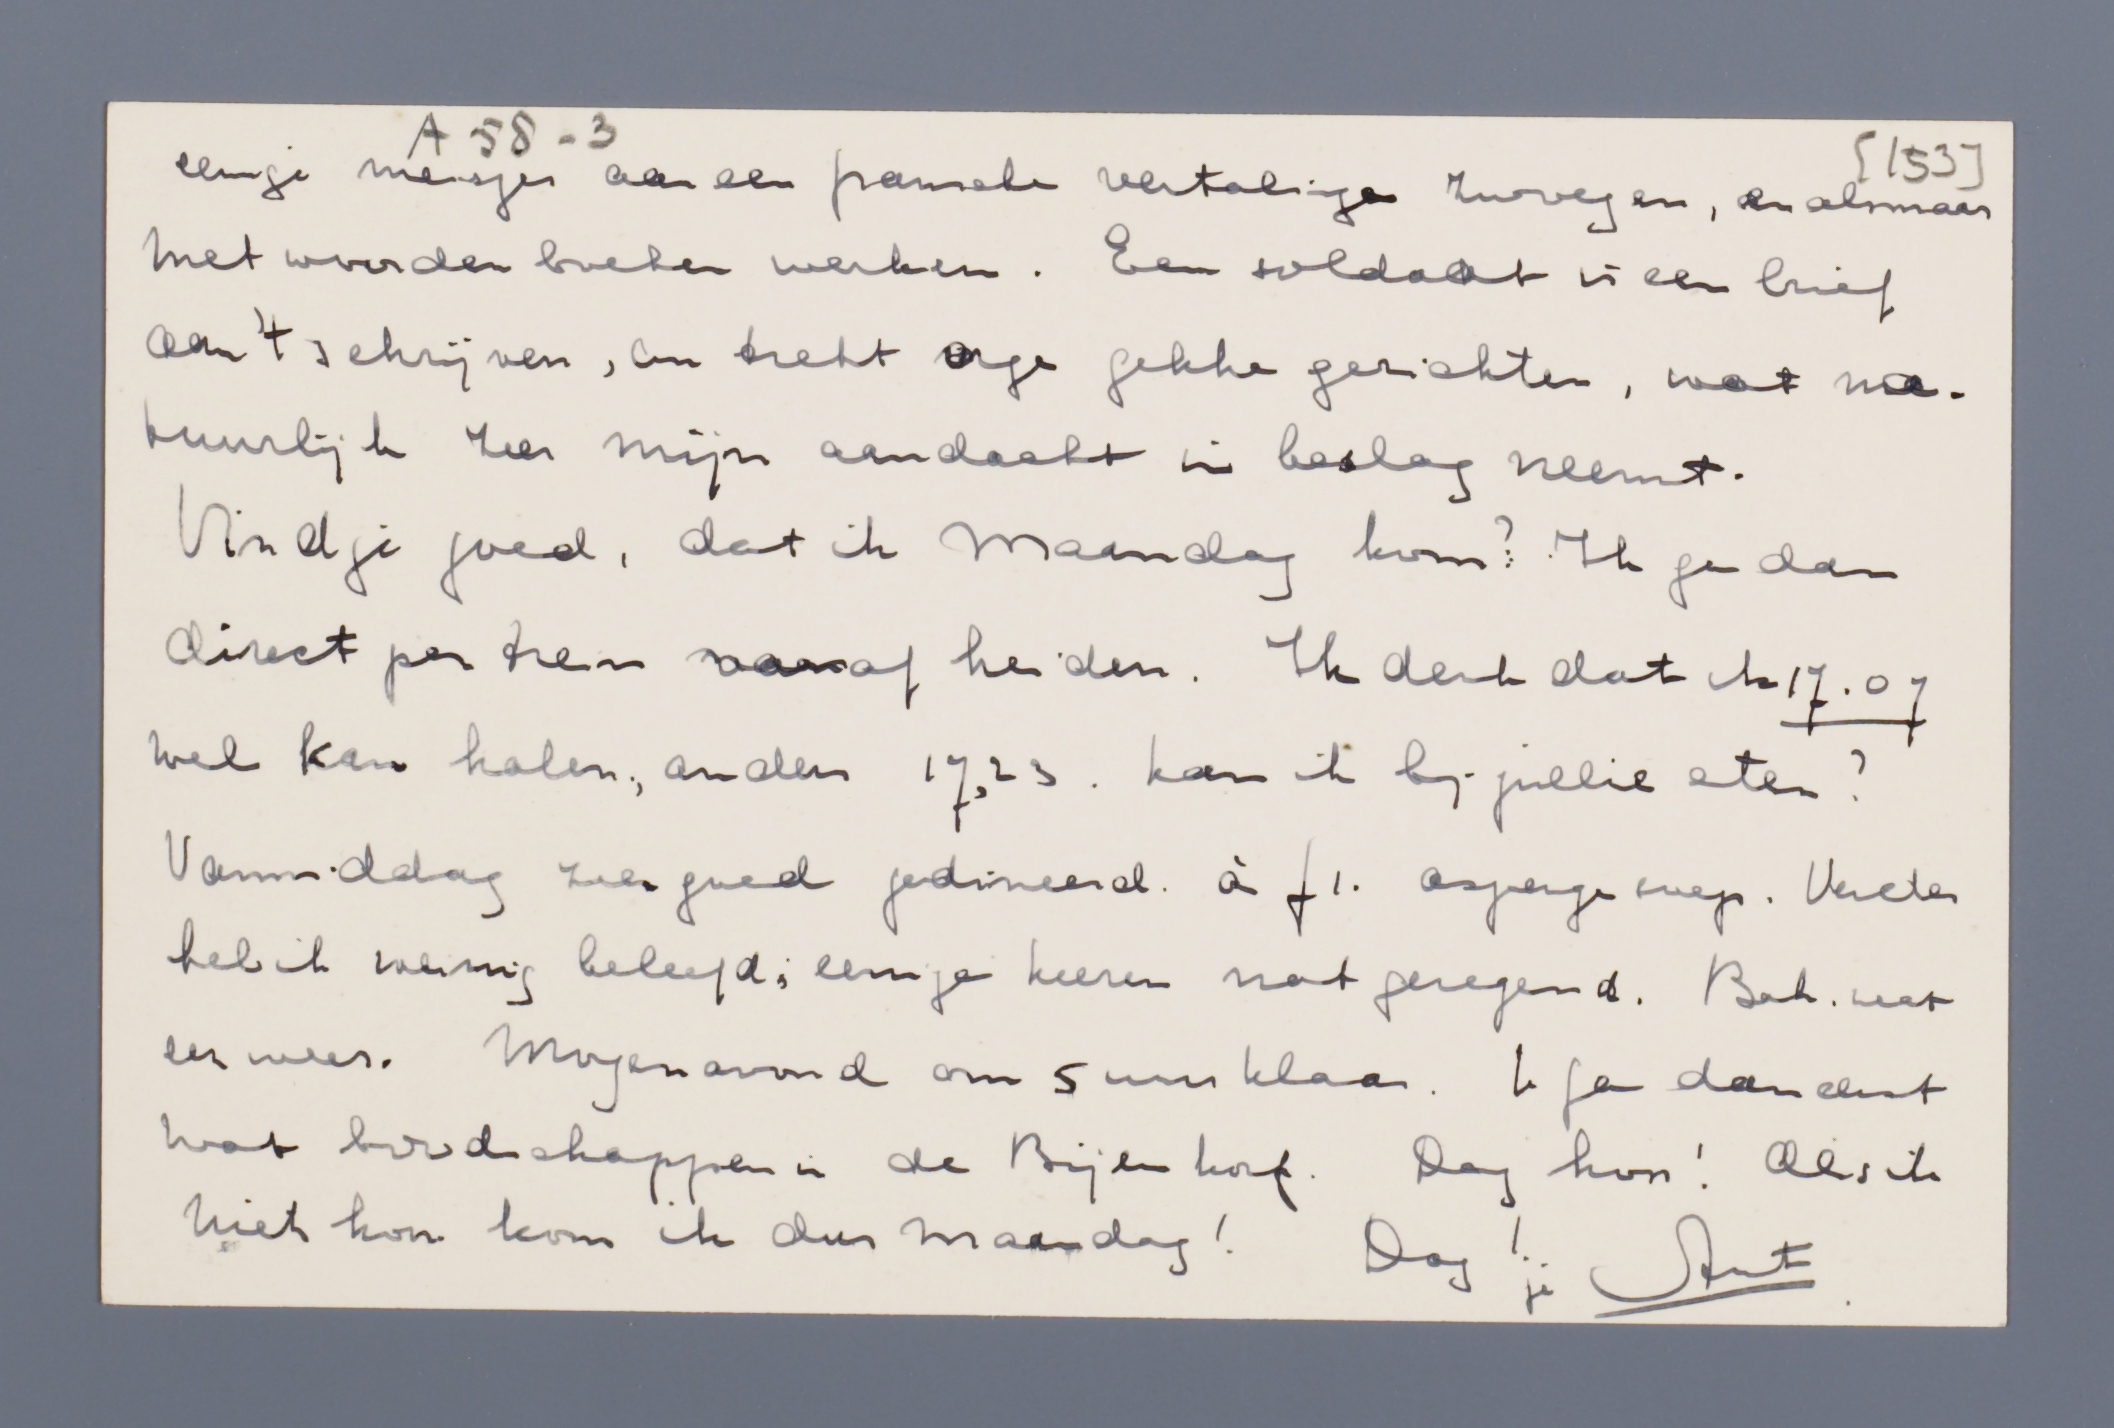 A 58-3
[153]
eenige meisjes aan een fransche vertaling zwoegen, en alsmaar
met woordenboeken werken. Een soldaat is een brief
aan 't schrijven, en trekt erge gekke gezichten, wat na-
tuurlijk zeer mijn aandacht in beslag neemt.
Vind je goed, dat ik Maandag kom? Ik ga dan
direct per trein vanaf Leiden. Ik denk dat ik 17.07
wel kan halen, anders 17,23. Kan ik bij jullie eten?
Vanmiddag zeer goed gedineerd. à f 1. asperge soep. Verder
heb ik weinig beleefd; eenige keeren nat geregend. Bah. wat
een weer. Morgenavond om 5 uur klaar. Ik ga dan eerst
wat boodschappen in de Bijenkorf. Dag hoor! Als ik
niet kom kom ik dus maandag! Dag! je Aut